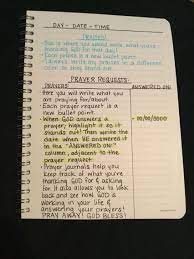 DAY - DATE - TIME
PRAISES!
- This is where you would write what you're
thanking GOD for that day!
- Each praise is a new bullet point.
- I always write my praises in a different
color so they stand out!
PRAYER REQUESTS:
PRAYERS ANSWERED ON:
- Here you will write what you
are praying for/about.
- Each prayer request is a
new bullet point.
- When GOD answers a - 00/00/0000
prayer, highlight it so it
stands out! Then write the
date when HE answered it
in the "ANSWERED ON:"
column, adjacent to the
prayer request.
- Prayer journals help you
keep track of what you're
thanking GOD for & asking
for. It also allows you to look
back and see how GOD is
working in your life &
answering your prayers!
PRAY AWAY! GOD BLESS!